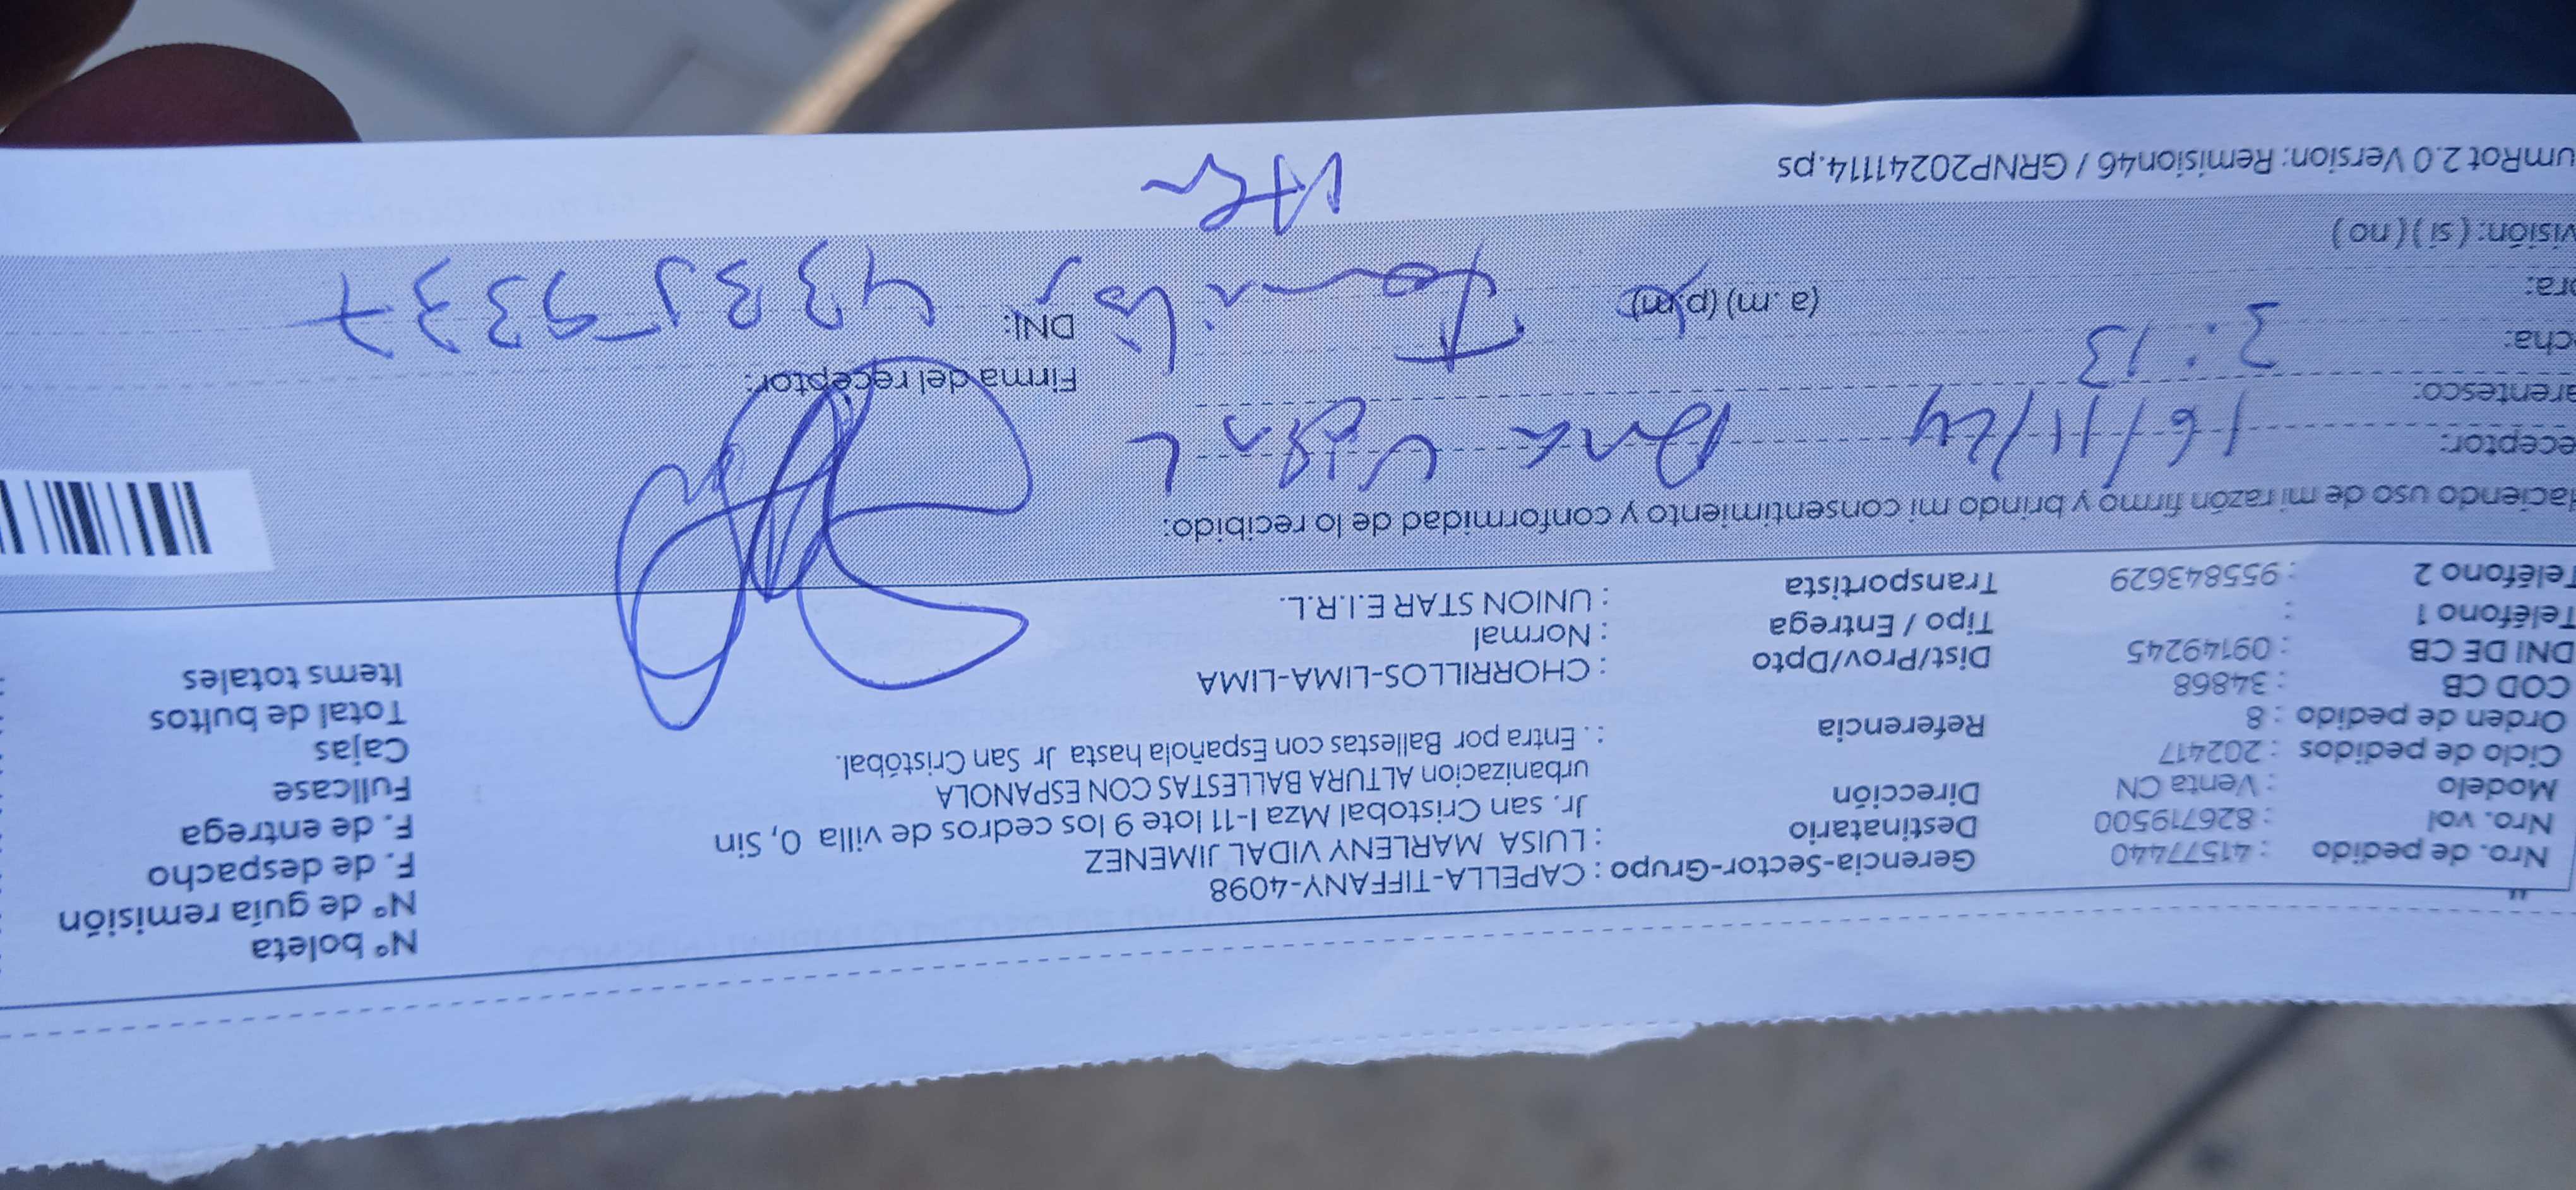 Nº boleta
Nº de guía remisión
F. de despacho
F. de entrega
Fullcase
Cajas
Total de bultos
Items totales
Nro. de pedido : 41577440
Nro. vol : 826719500
Modelo : Venta CN
Ciclo de pedidos : 202417
Orden de pedido : 8
COD CB : 34868
DNI DE CB : 09149245
Teléfono 1 :
Teléfono 2 : 955843629
Gerencia-Sector-Grupo : CAPELLA-TIFFANY-4098
Destinatario : LUISA MARLENY VIDAL JIMENEZ
Dirección Jr. san Cristobal Mza I-11 lote 9 los cedros de villa 0, Sin
urbanizacion ALTURA BALLESTAS CON ESPANOLA
Referencia : . Entra por Ballestas con Española hasta Jr San Cristóbal.
Dist/Prov/Dpto : CHORRILLOS-LIMA-LIMA
Tipo / Entrega : Normal
Transportista : UNION STAR E.I.R.L.
Haciendo uso de mi razón firmo y brindo mi consentimiento y conformidad de lo recibido:
eceptor: 16/11/24
arentesco:
cha: 3:13
ora: (a.m) (p.m)
visión: (si) (no)
Firma del receptor:
DNI:
umRot 2.0 Version: Remision46 / GRNP20241114.ps